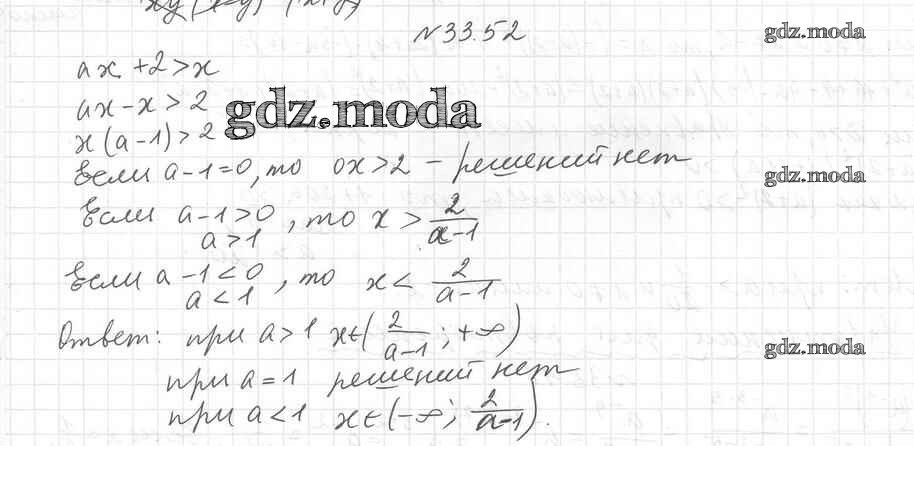 №33.52
gdz.moda
ax+2>x
ax-x>2
gdz.moda
x(a-1)>2
Если a-1=0, то 0x>2 - решений нет
gdz.moda
Если a-1>0, то x > 2/(a-1)
a>1
Если a-1<0, то x < 2/(a-1)
a<1
Ответ: при a>1 x∈(2/(a-1); +∞)
gdz.moda
при a=1 решений нет
при a<1 x∈(-∞; 2/(a-1)).